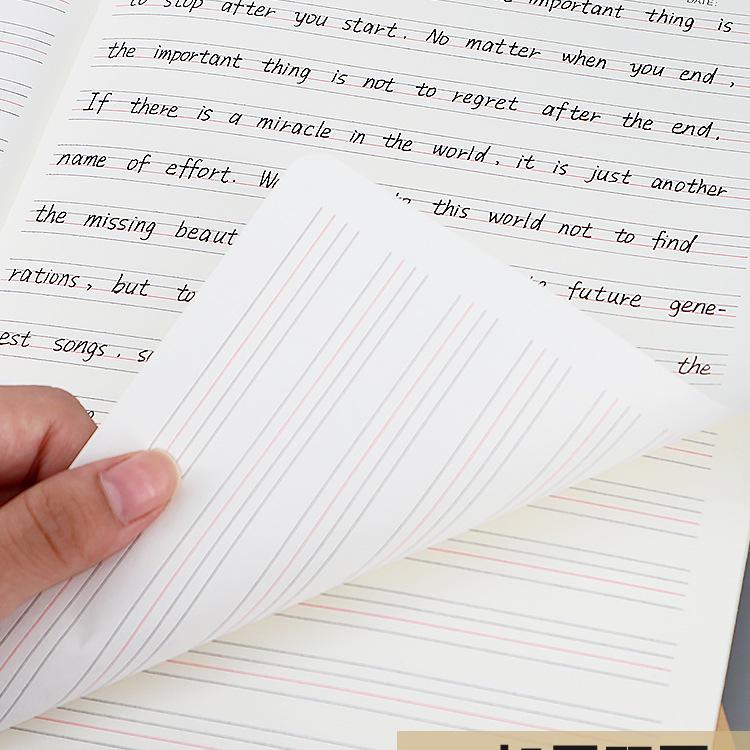 DATE:
important thing is
to stop after you start. No matter when you end,
the important thing is not to regret after the end.
If there is a miracle in the world, it is just another
name of effort. this world not to find
the missing beaut future gene-
rations, but to the
est songs.